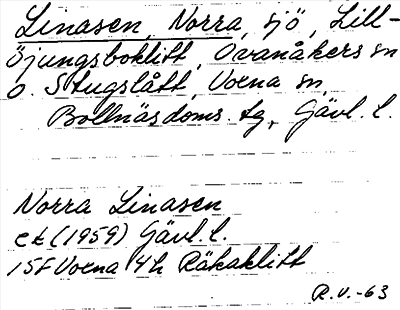 Linasen, Norra, sjö, Lill-
Öjungsboklitt, Ovanåkers sn
o. Stugslått, Voxna sn,
Bollnäs doms. tg, Gävl. l.
Norra Linasen
ek (1959) Gävl. l.
15F Voxna 4h Räkaklitt
R.V.-63